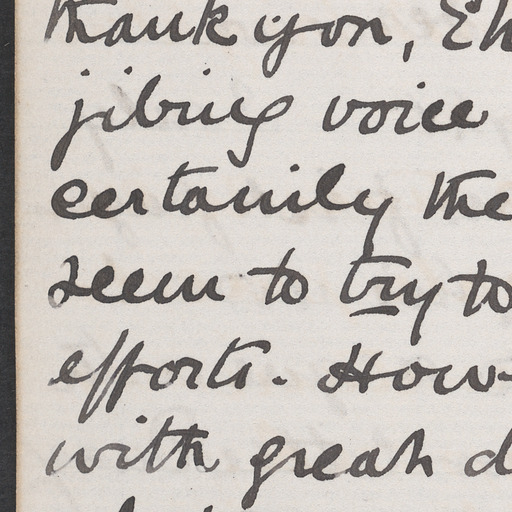 thank you, Eh
jibing voice
certainly the
seem to try to
efforts. How-
with great d